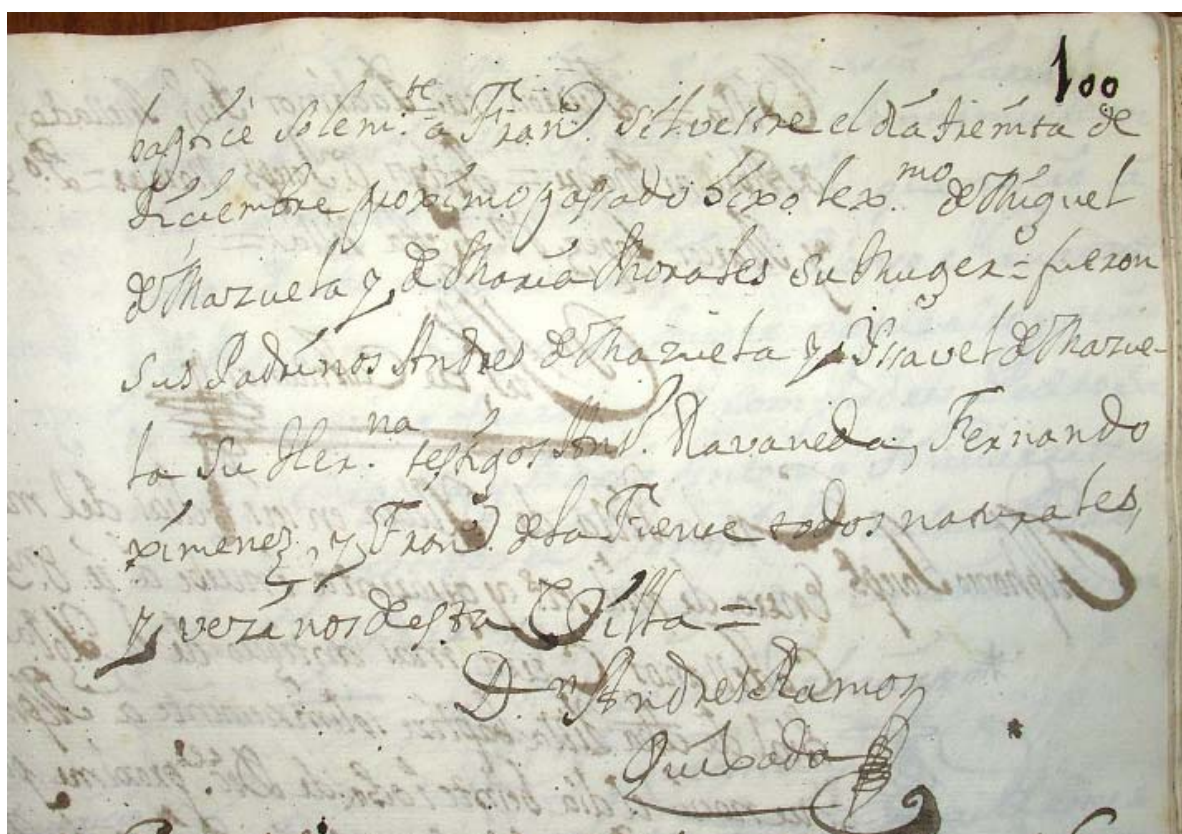 100
baptice solem.te a Fran.co silvestre el dia treinta de
diciembre proximo passado hixo lex.mo de Miguel
de Mazueta y de Maria Morales su Muger = fueron
sus Padrinos Andres de Mazueta y Ysavel de Mazue-
ta su Her.na testigos Ant.o Navaveda, Fernando
ximenez y Fran.co de la Fuente todos naturales,
y vezinos desta Villa =
D.r Andres Ramos
Quixada